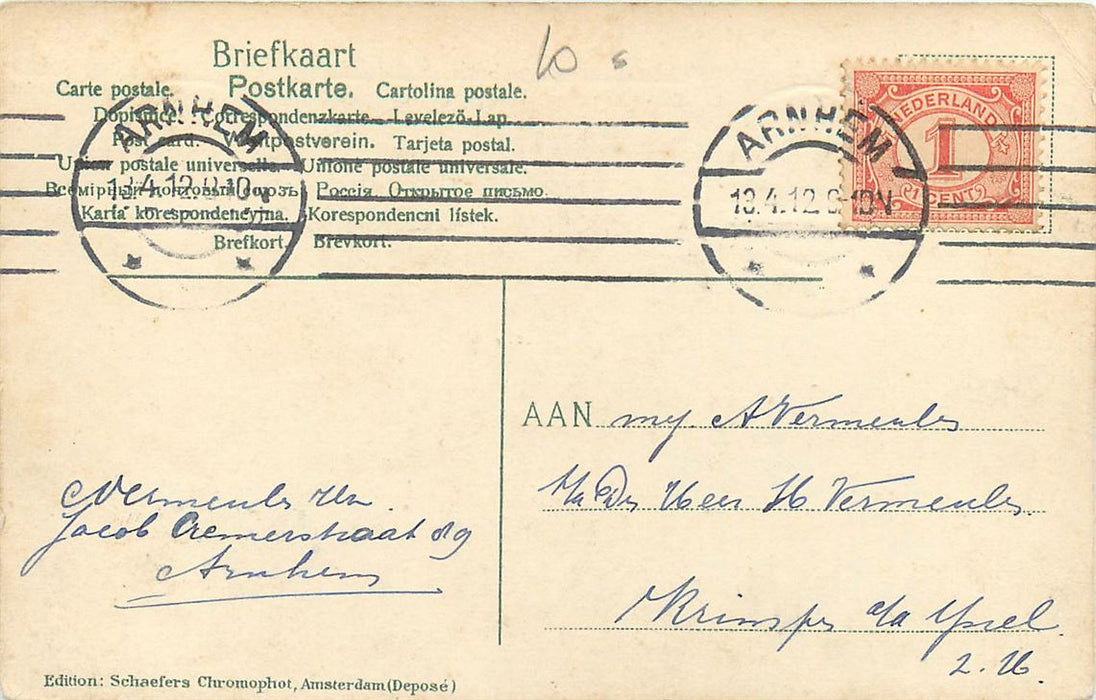 10 s
Briefkaart
Carte postale. Postkarte. Cartolina postale.
Dopisnice. Correspondenzkarte. Levelező-Lap.
Post card. Weltpostverein. Tarjeta postal.
Union postale universelle. Unione postale universale.
Всемірный почтовый союзъ Россія. Открытое письмо.
Karta korespondencyjna. Korespondencni lístek.
Brefkort. Brevkort.
ARNHEM
13.4.12. 10
ARNHEM
13.4.12 10N
NEDERLAND
1
1 CENT
AAN mej A Vermeulen
Heer H Vermeulen
Krimpen a/d Ysel
Z. H.
Vermeulen
Jacob Cremerstraat 89
Arnhem
Edition: Schaefers Chromophot, Amsterdam (Deposé)